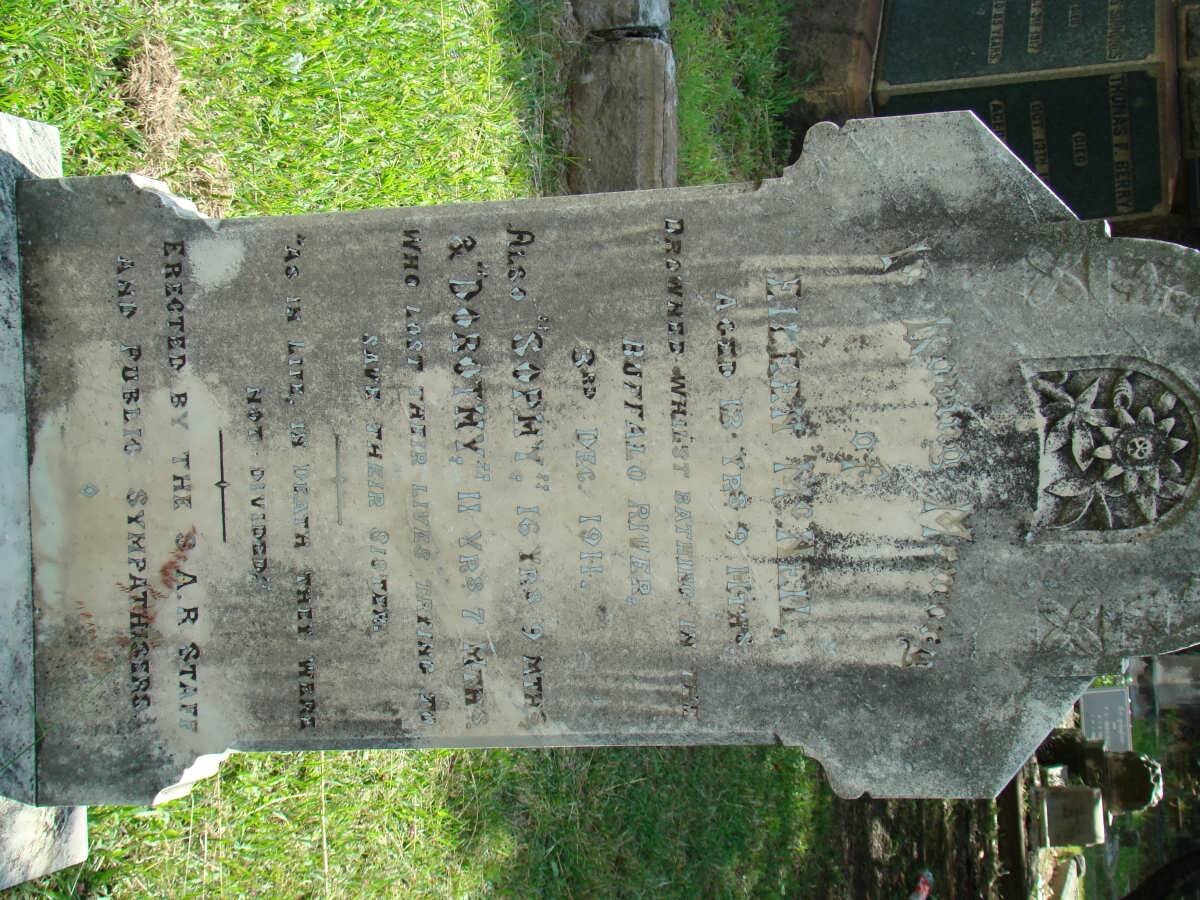 In Loving Memory
OF
EILEEN McCANN.
AGED 13 YRS 9 MTHS,
DROWNED WHILST BATHING IN THE
BUFFALO RIVER,
3RD DEC. 1911.
ALSO "SOPHY", 16 YRS 9 MTHS
& "DOROTHY," 11 YRS 7 MTHS.
WHO LOST THEIR LIVES TRYING TO
SAVE THEIR SISTER.
"AS IN LIFE, IN DEATH THEY WERE
NOT DIVIDED."
ERECTED BY THE S.A.R STAFF
AND PUBLIC SYMPATHISERS.
THOMAS F. BERRY
DIED